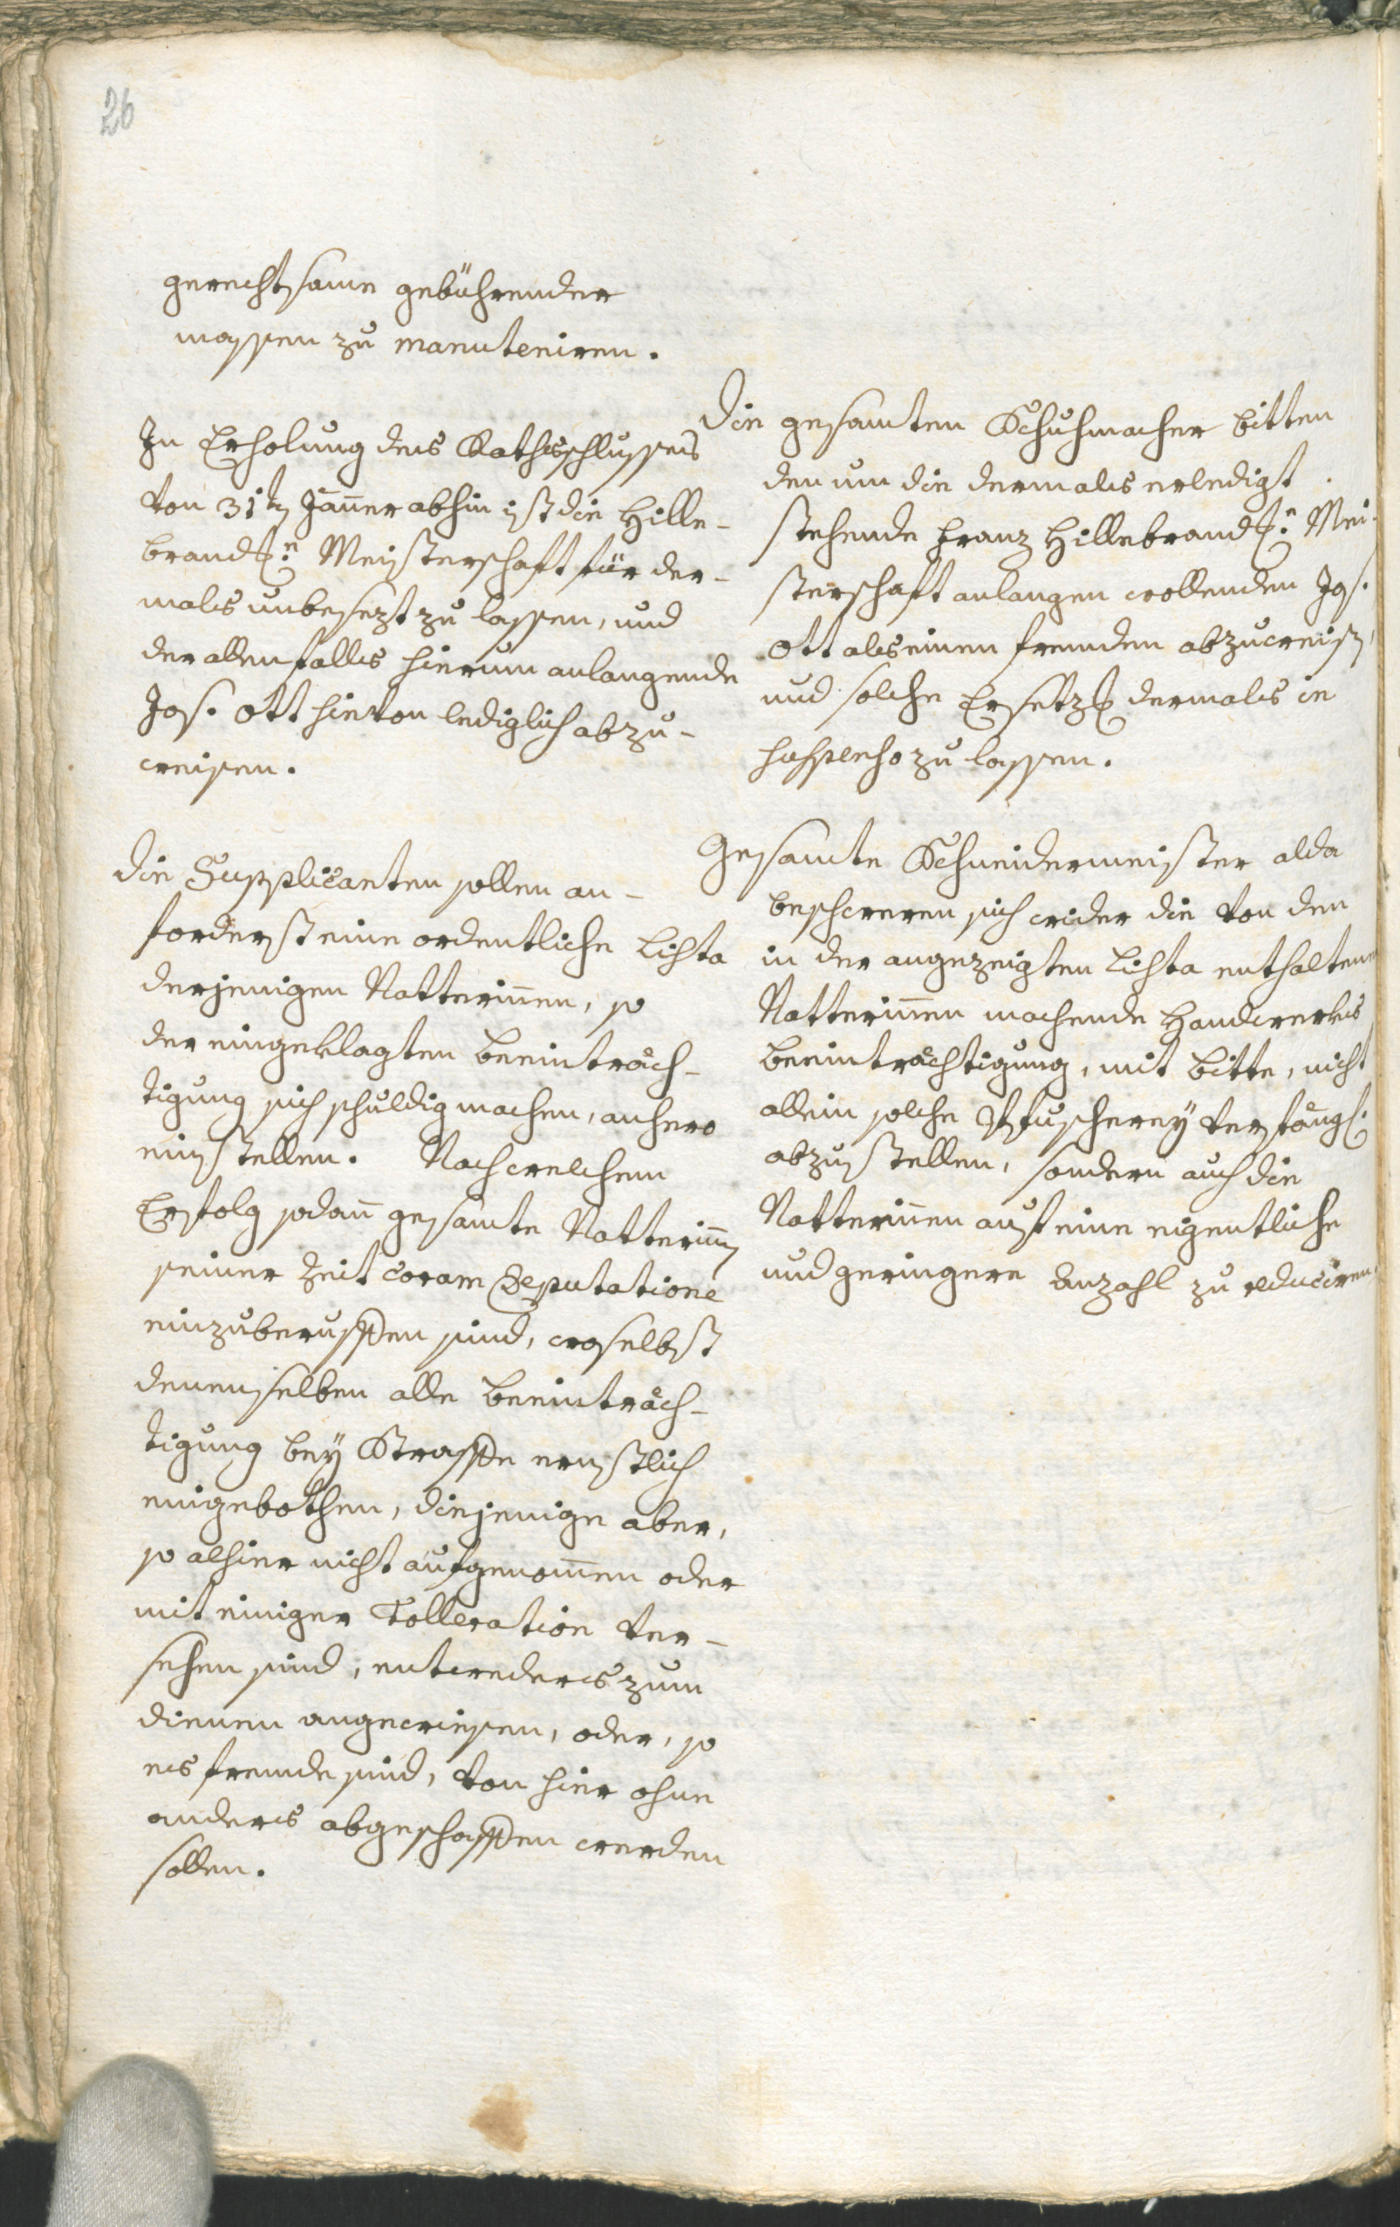 26
gerechtsame gebührender
massen zu manuteniren.
In Erholung des Rathsschlusses
von 31t. Jänner abhin ist die Hille-
brand. Meisterschaft für der-
mals unbesezt zu lassen, und
der allenfalls hierum anlangende
Jos. Ott hievon lediglich abzu-
weisen.
Die Supplicanten sollen an-
forderst eine ordentliche Lista
derjenigen Natterinnen, so
der eingeklagten Beeinträch-
tigung sich schuldig machen, anhero
einstellen. Nach welchem
Erfolg sodan gesamte Natterinn
seiner Zeit coram Deputatione
einzuberuffen sind, woselbst
denenselben alle Beeinträch-
tigung bey Straffe ernstlich
eingebothen, diejenige aber,
so alhier nicht aufgenomen oder
mit einiger Tolleration ver-
sehen sind, entweders zum
dienen angewiesen, oder, so
es fremde sind, von hier ohne
anders abgeschaffen werden
sollen.
Die gesamten Schuhmacher bitten
den um die dermals erledigt
stehende Franz Hillebrand. Mei-
sterschaft anlangen wollenden Jos.
Ott als einen fremden abzuweis,
und solche Ersetzg dermals in
suspenso zu lassen.
Gesamte Schneidermeister alda
beschweren sich wider die von den
in der angezeigten Lista enthaltenen
Natterinnen machende Handwerks
Beeinträchtigung, mit Bitte, nicht
allein solche Pfuscherey verfängl.
abzustellen, sondern auch die
Natterinnen auf eine eigentliche
und geringere Anzahl zu reduciren.